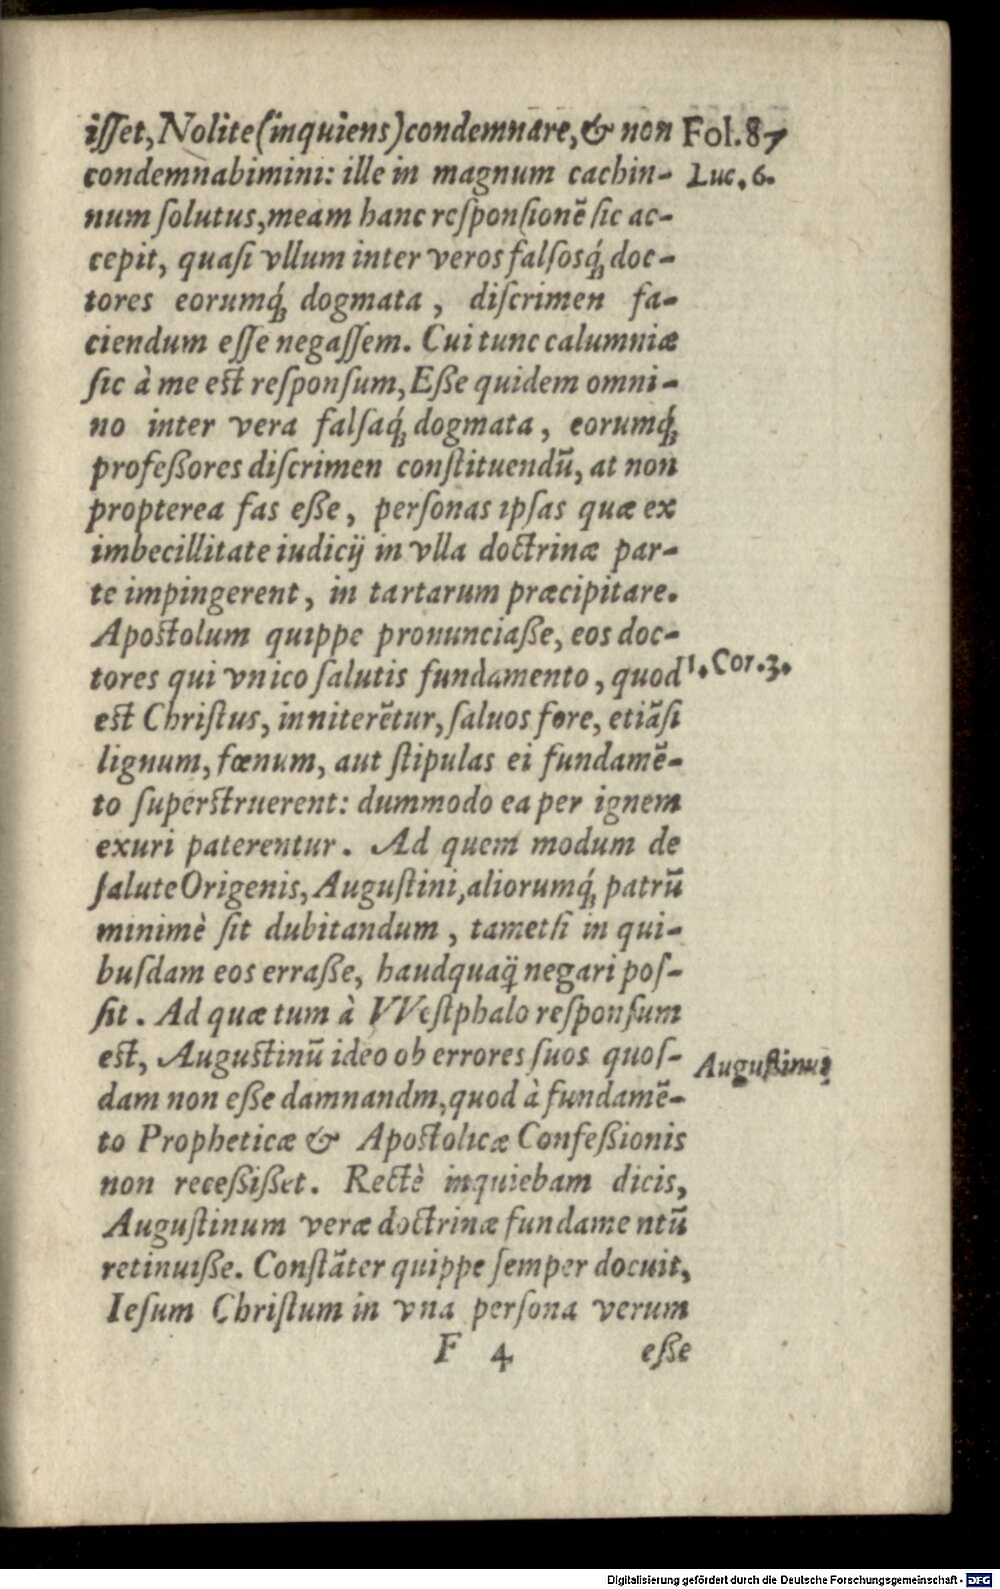 iſſet, Nolite (inquiens) condemnare, & non Fol. 87
condemnabimini: ille in magnum cachin- Luc. 6.
num ſolutus, meam hanc reſponſionẽ ſic ac-
cepit, quaſi vllum inter veros falſosq́ꝫ doc-
tores eorumq́ꝫ dogmata, diſcrimen fa-
ciendum eſſe negaſſem. Cui tunc calumniæ
ſic à me eſt reſponſum, Eße quidem omni-
no inter vera falſaq́ꝫ dogmata, eorumq́ꝫ
profeßores diſcrimen conſtituendũ, at non
propterea fas eße, perſonas ipſas quæ ex
imbecillitate iudicij in vlla doctrinæ par-
te impingerent, in tartarum præcipitare.
Apoſtolum quippe pronunciaße, eos doc-
tores qui vnico ſalutis fundamento, quod 1. Cor. 3.
eſt Chriſtus, inniterẽtur, ſaluos fore, etiãſi
lignum, fœnum, aut ſtipulas ei fundamẽ-
to ſuperſtruerent: dummodo ea per ignem
exuri paterentur. Ad quem modum de
ſalute Origenis, Auguſtini, aliorumq́ꝫ patrũ
minimè ſit dubitandum, tametſi in qui-
buſdam eos erraße, haudquaq̃ negari poſ-
ſit. Ad quæ tum à VVeſtphalo reſponſum
eſt, Auguſtinũ ideo ob errores ſuos quoſ- Auguſtinus
dam non eße damnandm, quod à fundamẽ-
to Propheticæ & Apoſtolicæ Confeßionis
non receßißet. Rectè inquiebam dicis,
Auguſtinum veræ doctrinæ fundamentũ
retinuiße. Conſtãter quippe ſemper docuit,
Ieſum Chriſtum in vna perſona verum
F 4 eße
Digitalisierung gefördert durch die Deutsche Forschungsgemeinschaft - DFG